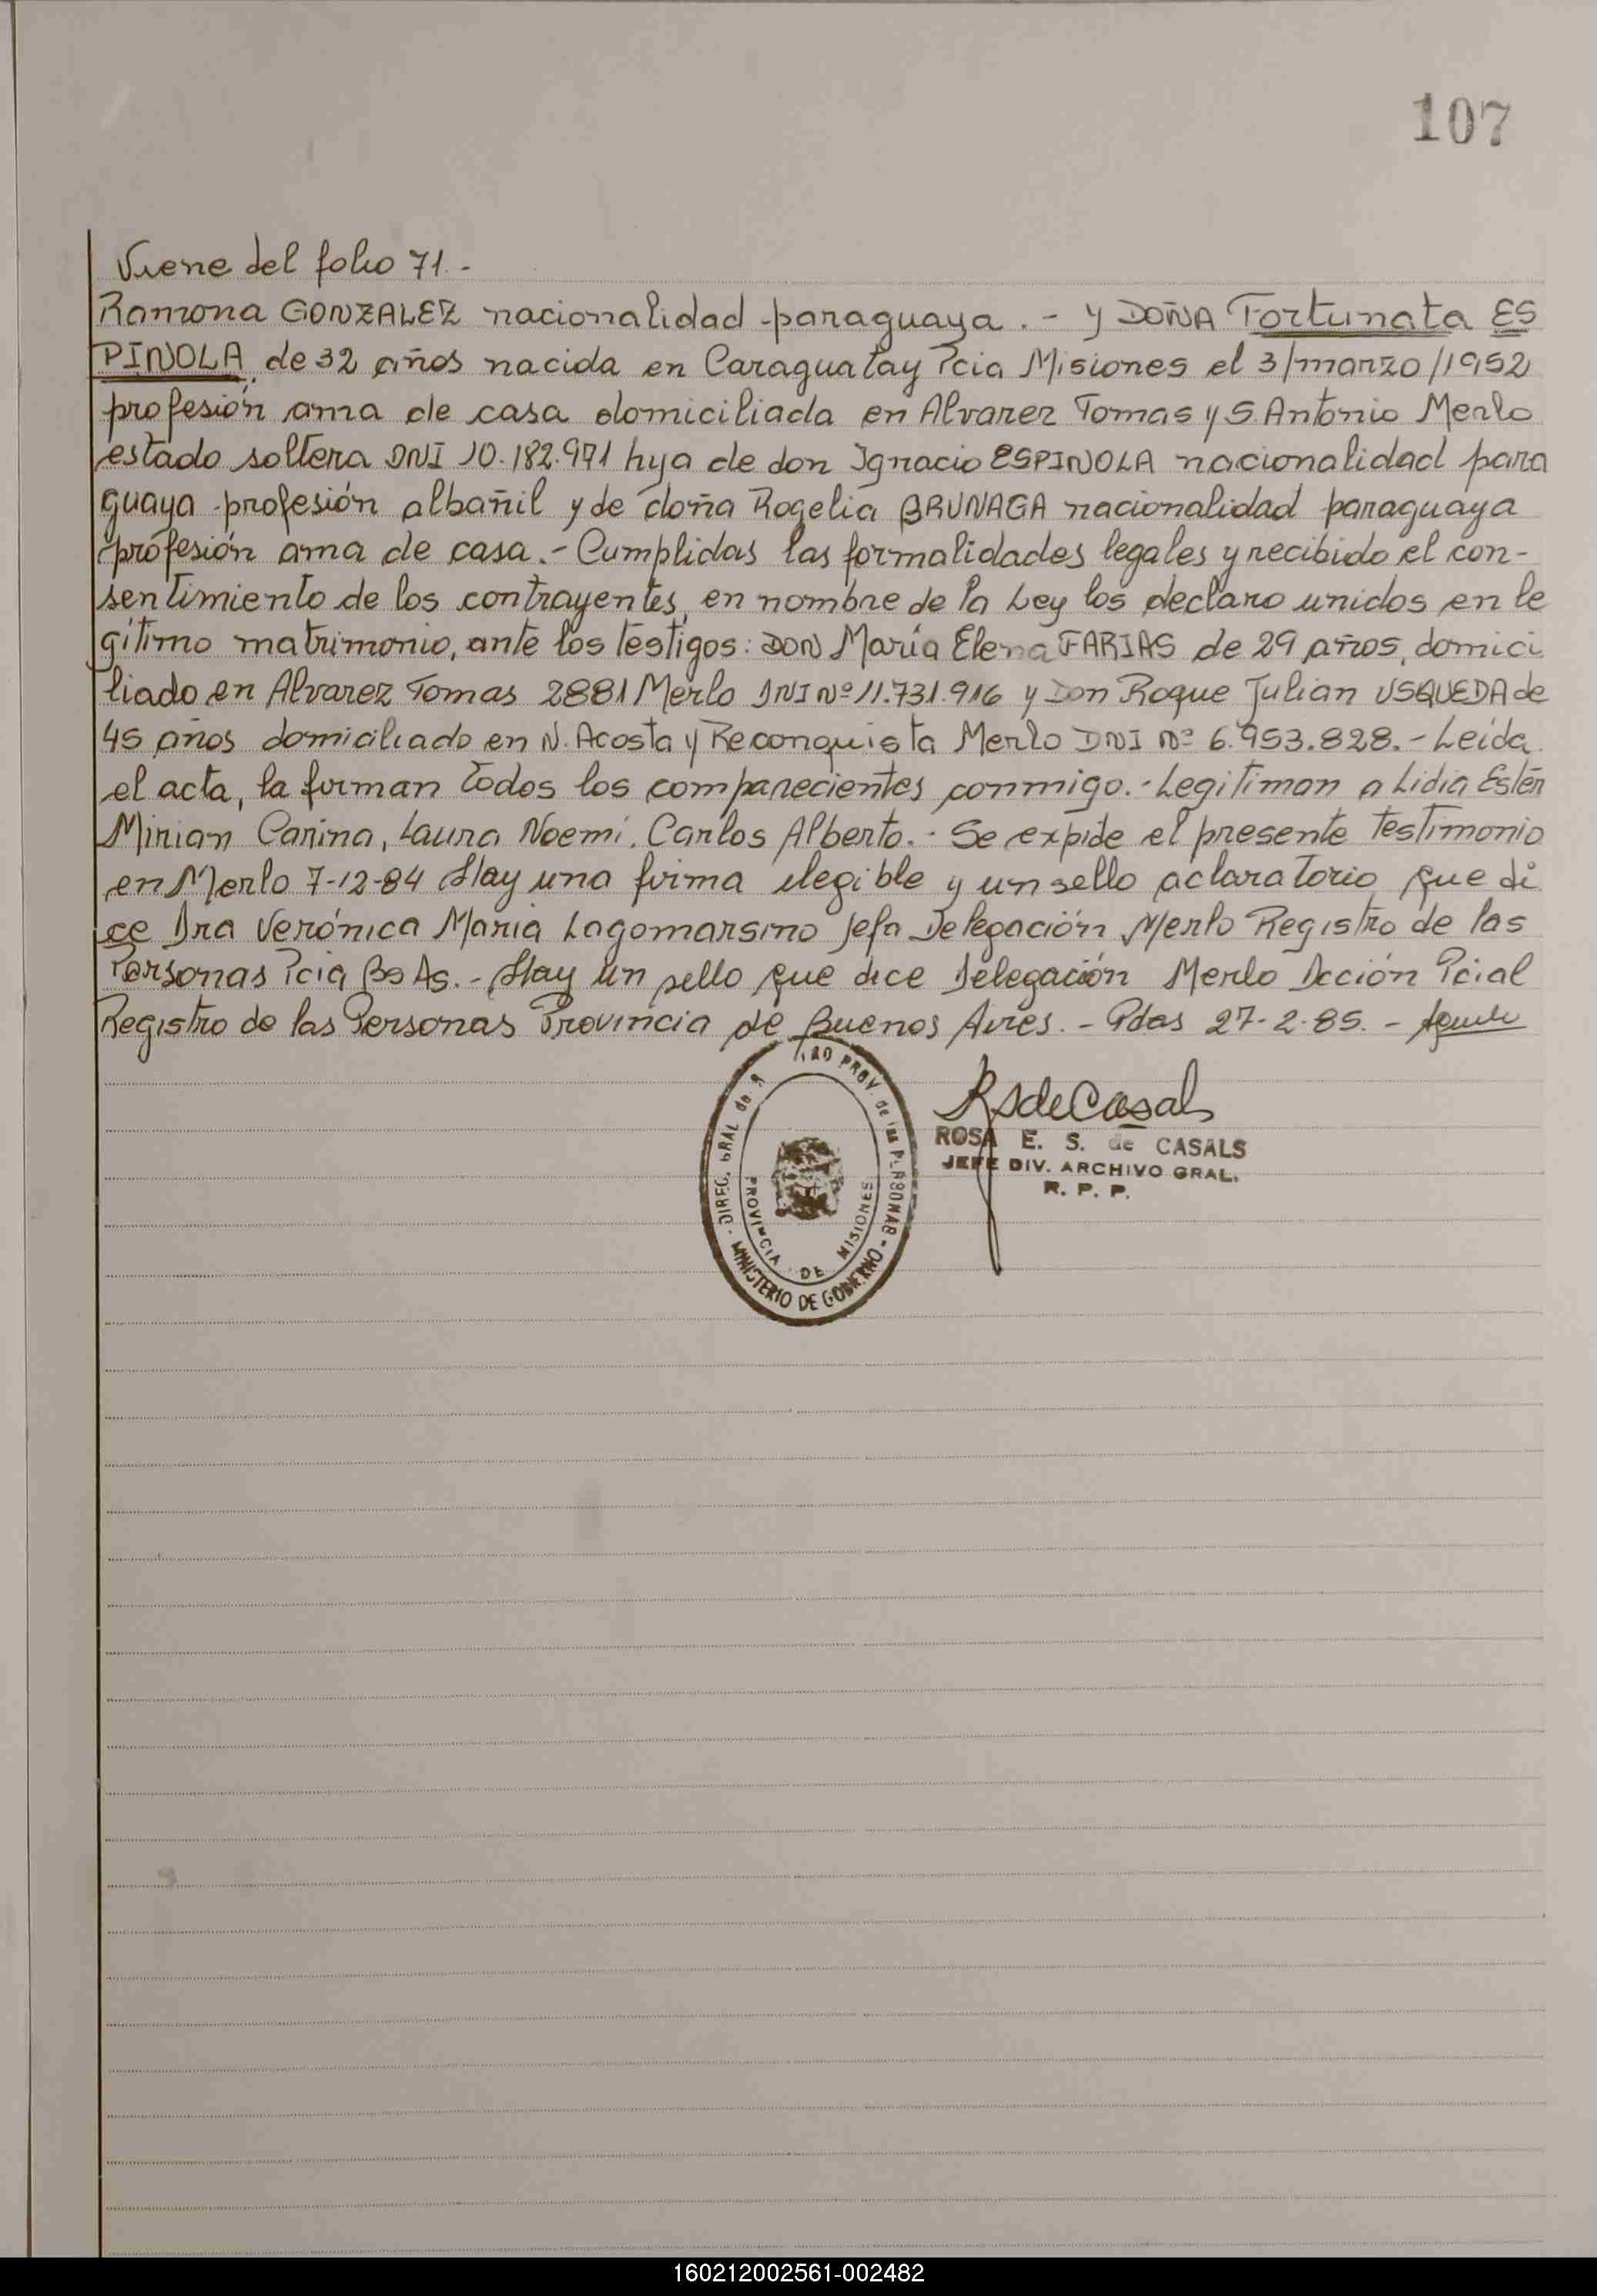 107
Viene del folio 71.-
Ramona GONZALEZ nacionalidad paraguaya.- y DOÑA Fortunata ES
PINOLA, de 32 años nacida en Caraguatay Pcia Misiones el 3/marzo/1952
profesión ama de casa domiciliada en Alvarez Tomas y S. Antonio Merlo
estado soltera DNI 10.182.971 hija de don Ignacio ESPINOLA nacionalidad para
guaya profesión albañil y de doña Rogelia BRUNAGA nacionalidad paraguaya
profesión ama de casa.- Cumplidas las formalidades legales y recibido el con-
sentimiento de los contrayentes, en nombre de la Ley los declaro unidos en le
gítimo matrimonio, ante los testigos: DON María Elena FARIAS de 29 años, domici
liado en Alvarez Tomas 2881 Merlo DNI Nº 11.731.916 y Don Roque Julian USQUEDA de
45 años domiciliado en N. Acosta y Reconquista Merlo DNI Nº 6.953.828.- Leída
el acta, la firman todos los comparecientes conmigo.- Legitiman a Lidia Estér
Mirian Carina, Laura Noemí, Carlos Alberto.- Se expide el presente testimonio
en Merlo 7-12-84 Hay una firma ilegible y un sello aclaratorio que di
ce Dra Verónica María Lagomarsino Jefa Delegación Merlo Registro de las
Personas Pcia Bs As.- Hay un sello que dice Delegación Merlo Dcción Pcial
Registro de las Personas Provincia de Buenos Aires.- Pdas 27-2-85.-
RSdeCasals
ROSA E. S. de CASALS
JEFE DIV. ARCHIVO GRAL.
R. P. P.
DIREC. GRAL de PROV. de las PERSONAS - MINISTERIO DE GOBIERNO
PROVINCIA DE MISIONES
160212002561-002482